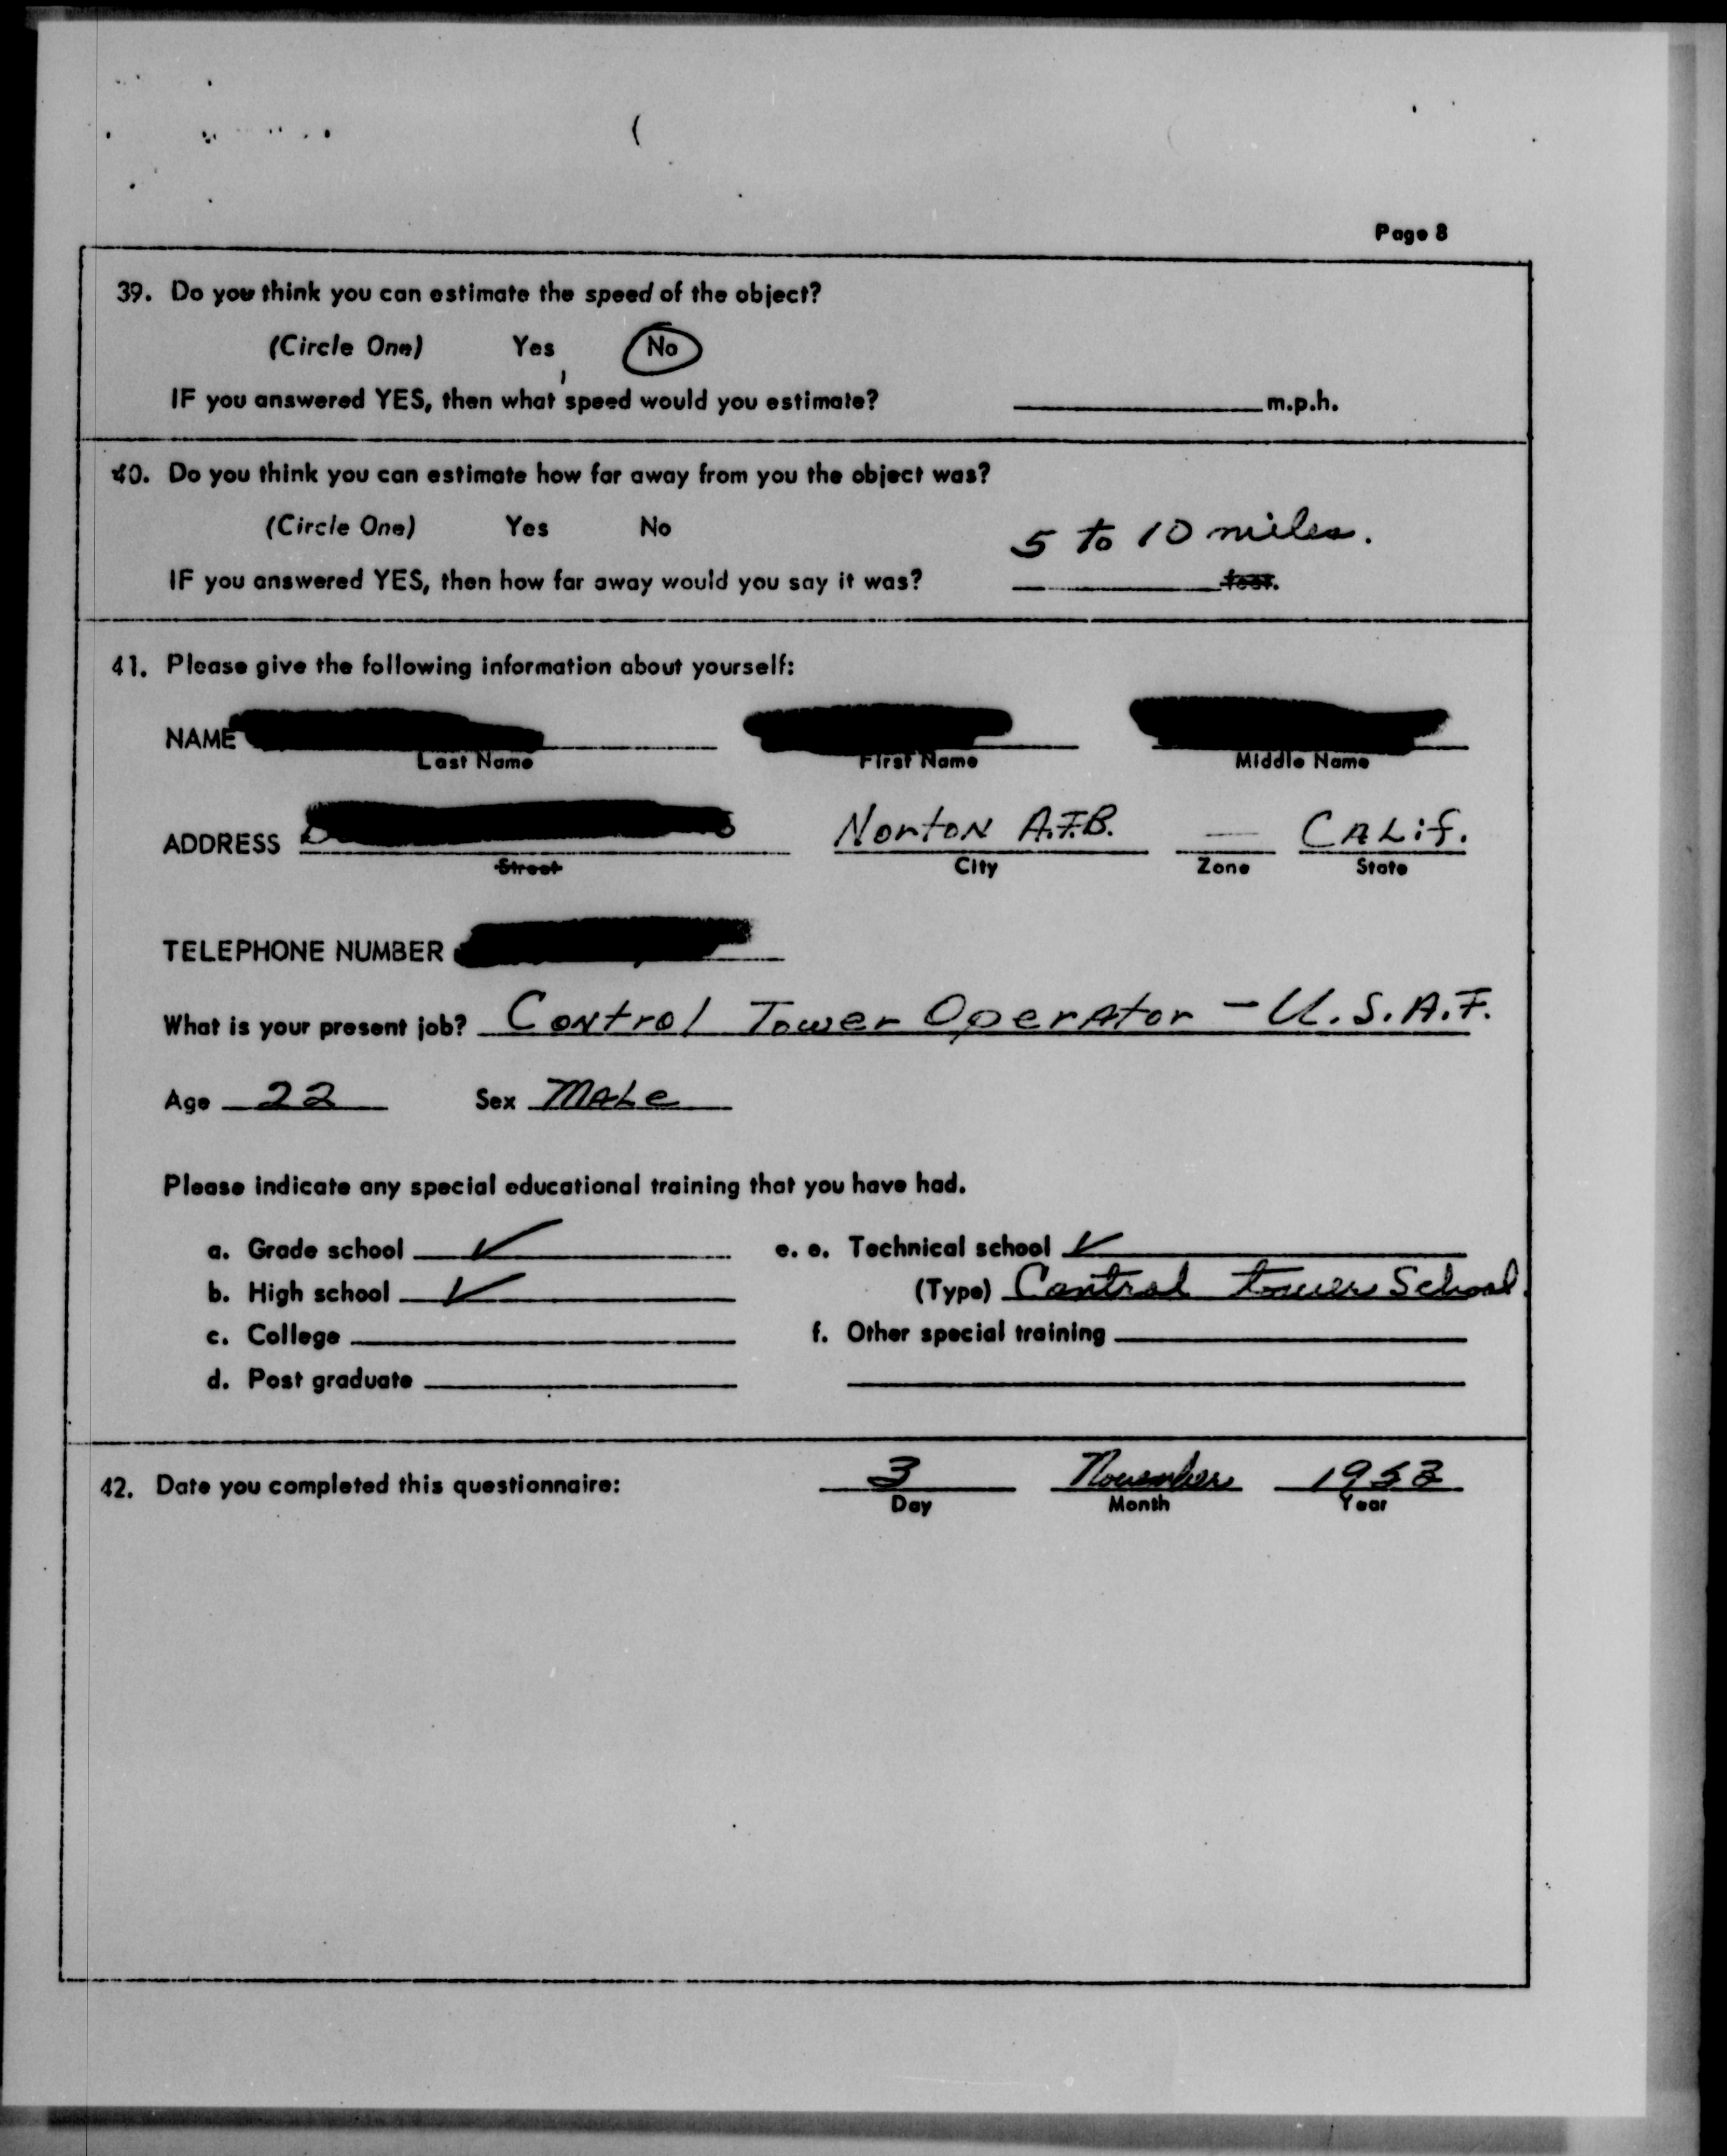 Page 8
39. Do you think you can estimate the speed of the object?
(Circle One) Yes No
IF you answered YES, then what speed would you estimate? m.p.h.
40. Do you think you can estimate how far away from you the object was?
(Circle One) Yes No
5 to 10 miles.
IF you answered YES, then how far away would you say it was? feet.
41. Please give the following information about yourself:
NAME
Last Name First Name Middle Name
ADDRESS Norton A.F.B. — CALif.
Street City Zone State
TELEPHONE NUMBER
What is your present job? Control Tower Operator - U.S.A.F.
Age 22 Sex MALe
Please indicate any special educational training that you have had.
a. Grade school ✓ e. e. Technical school ✓
b. High school ✓ (Type) Control tower School.
c. College f. Other special training
d. Post graduate
42. Date you completed this questionnaire: 3 November 1953
Day Month Year